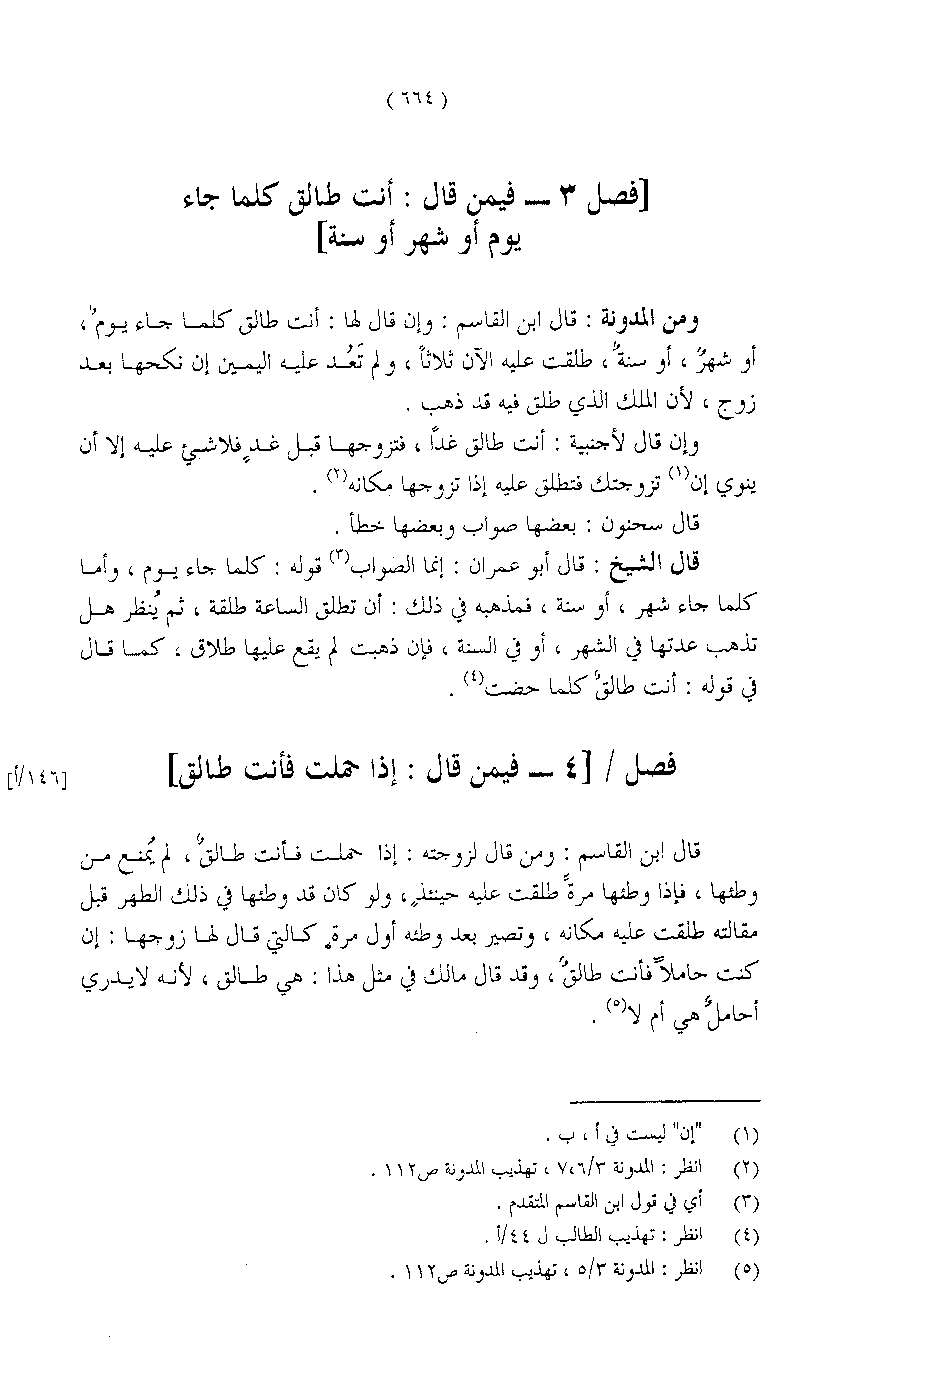 ( ٦٦٤ )
[فصل ٣ ــ فيمن قال : أنت طالق كلما جاء
يوم أو شهر أو سنة]
ومن المدونة : قال ابن القاسم : وإن قال لها : أنت طالق كلمـا جـاء يـومٌ ،
أو شهرٌ ، أو سنةٌ ، طلقت عليه الآن ثلاثاً ، ولم تَعُـد عليـه اليمـين إن نكحهـا بعـد
زوج ، لأن الملك الذي طلق فيه قد ذهب .
وإن قال لأجنبية : أنت طالق غداً ، فتزوجهـا قبـل غـدٍ فلاشيء عليـه إلا أن
ينوي إن(١) تزوجتك فتطلق عليه إذا تزوجها مكانه(٢) .
قال سحنون : بعضها صواب وبعضها خطأ .
قال الشيخ : قال أبو عمران : إنما الصواب(٣) قوله : كلما جاء يـوم ، وأمـا
كلما جاء شهر ، أو سنة ، فمذهبه في ذلك : أن تطلق الساعة طلقة ، ثم يُنظر هـل
تذهب عدتها في الشهر ، أو في السنة ، فإن ذهبت لم يقع عليها طلاق ، كمـا قـال
في قوله : أنت طالقٌ كلما حضت(٤) .
فصل / [٤ ــ فيمن قال : إذا حملت فأنت طالق]
[١٤٦/أ]
قال ابن القاسم : ومن قال لزوجته : إذا حملـت فـأنت طـالقٌ ، لم يُمنـع مـن
وطئها ، فإذا وطئها مرةً طلقت عليه حينئذٍ ، ولو كان قد وطئها في ذلك الطهر قبل
مقالته طلقت عليه مكانه ، وتصير بعد وطئه أول مرةٍ كـالتي قـال لهـا زوجهـا : إن
كنت حاملاً فأنت طالقٌ ، وقد قال مالك في مثل هذا : هي طـالق ، لأنـه لايـدري
أحاملٌ هي أم لا(٥) .
(١) "إن" ليست في أ ، ب .
(٢) انظر : المدونة ٧،٦/٣ ، تهذيب المدونة ص١١٢ .
(٣) أي في قول ابن القاسم المتقدم .
(٤) انظر : تهذيب الطالب ل ٤٤/أ .
(٥) انظر : المدونة ٥/٣ ، تهذيب المدونة ص١١٢ .